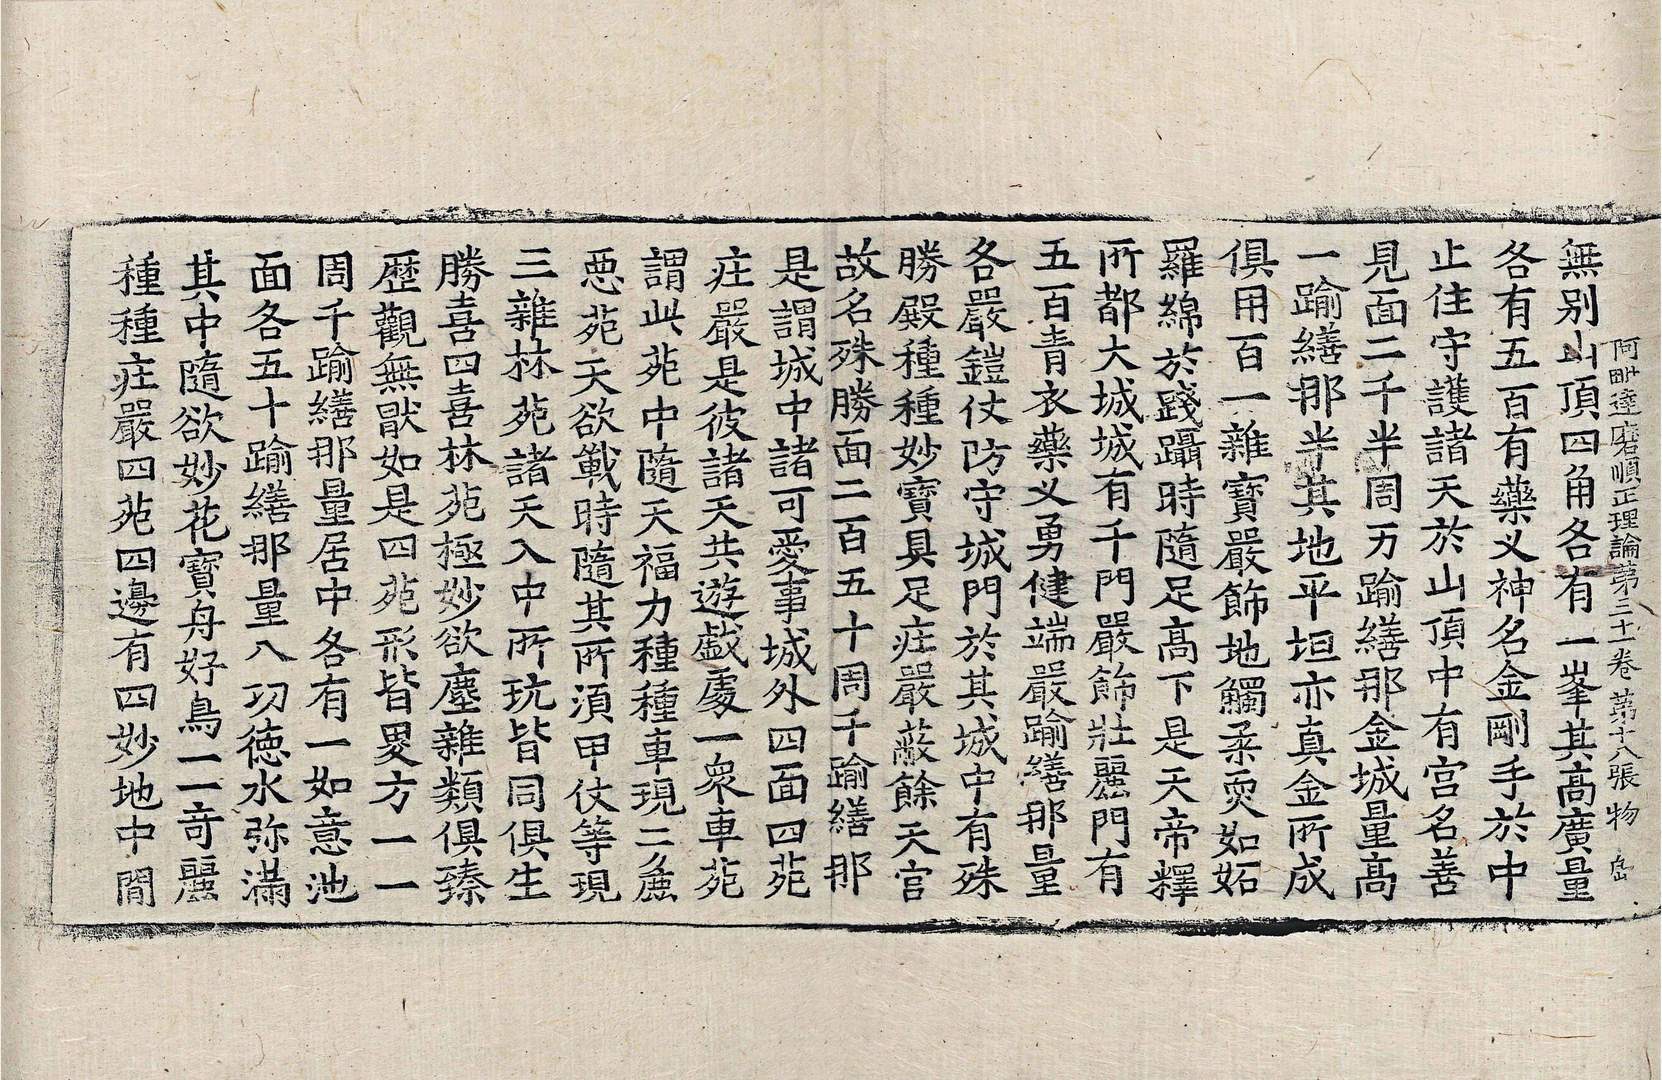 阿毗達磨順正理論第三十一卷 第十八張 物 嵒
無別山頂四角各有一峯其高廣量
各有五百有藥义神名金剛手於中
止住守護諸天於山頂中有宫名善
見面二千半周万踰繕那金城量高
一踰繕那半其地平坦亦真金所成
俱用百一雜寶嚴飾地觸柔耎如妬
羅綿於踐躡時隨足高下是天帝釋
所都大城城有千門嚴飾壯麗門有
五百青衣藥义勇健端嚴踰繕那量
各嚴鎧仗防守城門於其城中有殊
勝殿種種妙寶具足庄嚴蔽餘天宫
故名殊勝面二百五十周千踰繕那
是謂城中諸可愛事城外四面四苑
庄嚴是彼諸天共遊戲處一衆車苑
謂此苑中隨天福力種種車現二麁
惡苑天欲戰時隨其所湏甲仗等現
三雜林苑諸天入中所玩皆同俱生
勝喜四喜林苑極妙欲塵雜類俱臻
歷觀無猒如是四苑形皆畟方一一
周千踰繕那量居中各有一如意池
面各五十踰繕那量八功德水弥滿
其中隨欲妙花寶舟好鳥一一奇麗
種種庄嚴四苑四邊有四妙地中間